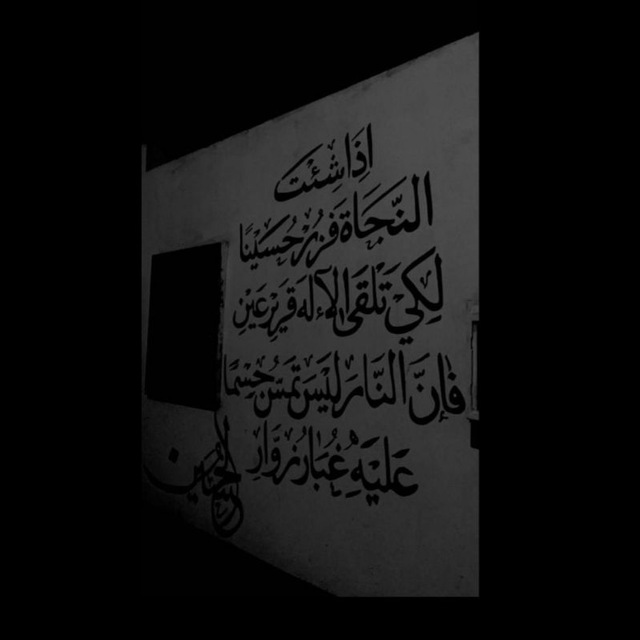 اذَا شِئْتَ
النَّجَاةَ فَزُرْ حُسَيْنًا
لِكَيْ تَلْقَى الإلهَ قَرِيرَ عَيْنِ
فَإِنَّ النَّارَ لَيْسَ تَمَسُّ جِسْمًا
عَلَيْهِ غُبَارُ زُوَّارِ
الحُسَيْنِ